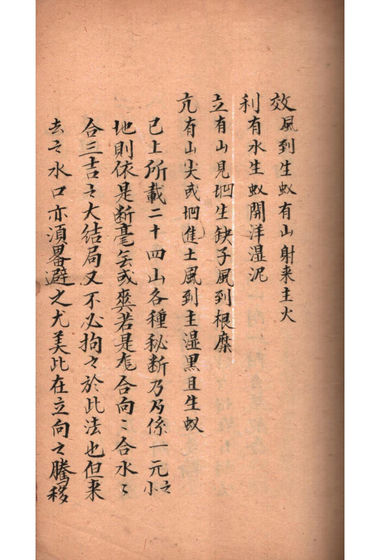 效風到生蚁有山射来主火
利有水生蚁開洋湿泥
立有山見坭生鈌子風到根糜
亢有山尖或坭進土風到主湿黑且生蚁
已上所載二十四山各種秘断乃乃係一元小之
地則依是断毫矣或爽若是龙合向〻合水〻
合三吉之大结局又不必拘〻於此法也但来
去之水口亦須畧避之尤美此在立向之騰移